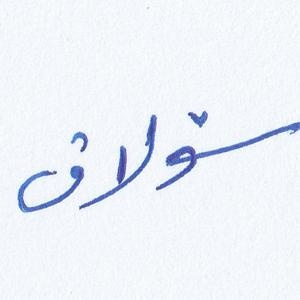 سۆلاڤ